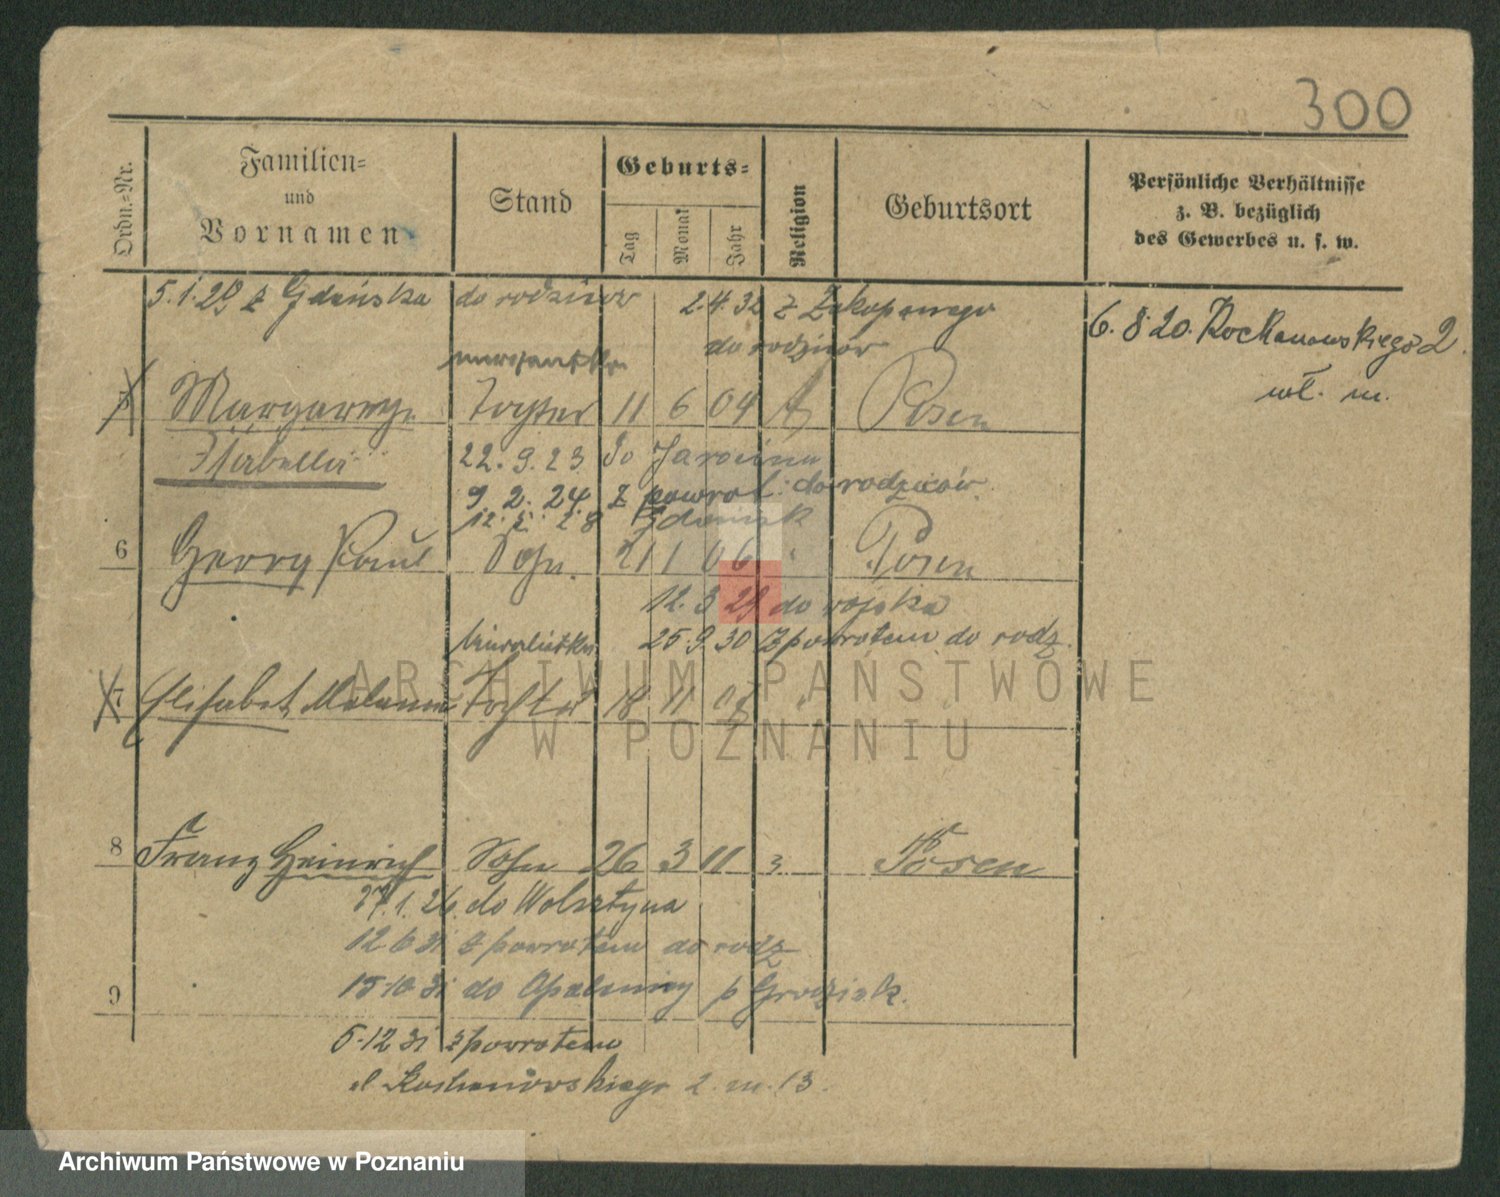 300
Ordn.-Nr.
Familien-
und
Vornamen
Stand
Geburts-
Tag
Monat
Jahr
Religion
Geburtsort
Persönliche Verhältnisse
z. B. bezüglich
des Gewerbes u. s. w.
5.1.29 z Gdańska do rodziców 2.4.32 z Zakopanego
do rodziców
6.8.20. Kochanowskiego 2.
wł. m.
5 Tochter 11 6 04 Posen
22.9.23 do Jarocina
9.2.24 z powrot. do rodziców
Gdańsk
6 Georg Paul Sohn. 21 1 06 " Posen
12.3 29 do wojska
25.9.30 z powrotem do rodz.
7 Elisabet Melanie Tochter 18 11 "
8 Franz Heinrich Sohn 26 3 11 Posen
27.1.26. do Wolsztyna
12 6 31 z powrotem do rodz
15.10.31 do Opalenicy p Grodzisk.
9
5.12 31 z powrotem
ul Kochanowskiego 2. m. 13.
ARCHIWUM PAŃSTWOWE
W POZNANIU
Archiwum Państwowe w Poznaniu